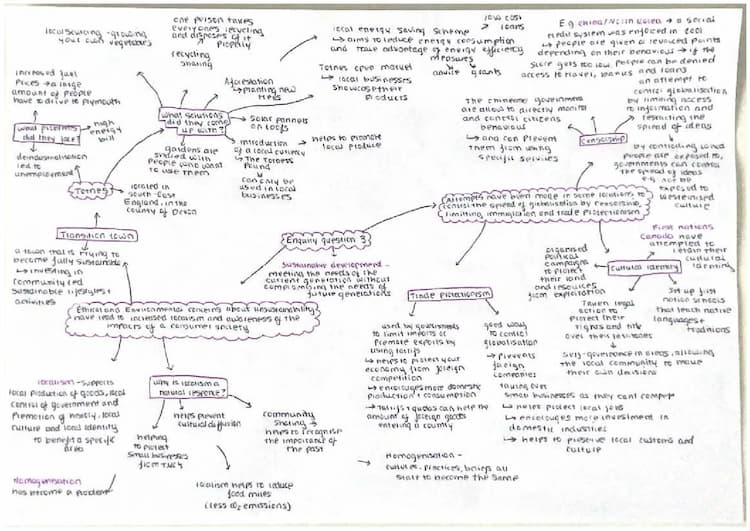 local sourcing - growing
your own vegetables
one person takes
everyones recycling
and disposes of it
properly
recycling
sharing
local energy saving scheme
↳ aims to reduce energy consumption
and take advantage of energy efficiency
measures
low cost
loans
advice
grants
Totnes open market
↳ local businesses
showcase their
products
Afforestation
↳ planting new
trees
solar pannels
on roofs
introduction
of a local currency
↳ The Totnes
Pound
↳ can only be
used in local
businesses
→ helps to promote
local produce
gardens are
shared with
people who want
to use them
What solutions
did they come
up with?
increased fuel
prices → a large
amount of people
have to drive to plymouth
What problems
did they face?
high
energy
bill
deindustrialisation
led to
unemployment
Totnes
located in
South-East
England, in the
county of Devon
Transition town
a town that is trying to
become fully sustainable
↳ investing in
community led
sustainable lifestyles +
activities
Ethical and Environmental concerns about unsustainability
have lead to increased localism and awareness of the
impacts of a consumer society
localism - supports
local production of goods, local
control of government and
promotion of history, local
culture and local identity
to benefit a specific
area
Homogenisation
has become a problem
Why is localism a
natural response?
helps prevent
cultural dilution
helping
to protect
small businesses
from TNCs
localism helps to reduce
food miles
(less CO2 emissions)
community
sharing →
helps to recognise
the importance of
the past
→ Homogenisation -
cultures, practices, beliefs all
start to become the same
Enquiry question 3
Sustainable development -
meeting the needs of the
current generation without
compromising the needs of
future generations
Attempts have been made in some locations to
control the spread of globalisation by censorship,
limiting immigration and trade protectionism
E.g China/N
→ a social
credit system was enforced in 2001
↳ people are given a reward points
depending on their behaviour → if the
score gets too low, people can be denied
access to travel, loans
and loans
an attempt to
control globalisation
by limiting access
to information and
restricting the
spread of ideas
The chinese government
are allow to directly monitor
and control citizens
behaviour
↳ and can prevent
them from using
specific services
Censorship
by controlling what
people are exposed to,
governments can control
the spread of ideas
e.g. not be
exposed to
westernised
culture
First nations
Canada have
attempted to
retain their
cultural
identity
Cultural identity
organised
political
campaigns
to protect
their land
and resources
from exploitation
Taken legal
action to
protect their
rights and title
over their territories
Set up first
nation schools
that teach native
languages +
traditions
Self-governance in areas, allowing
the local community to make
their own decisions
Trade Protectionism
used by governments
to limit imports or
promote exports by
using tariffs
↳ helps to protect your
economy from foreign
competition
→ encourages more domestic
production + consumption
→ tariffs + quotas can help the
amount of foreign goods
entering a country
good ways
to control
globalisation
↳ prevents
foreign
companies
taking over
small businesses as they cant compete
↳ helps protect local jobs
→ encourages more investment in
domestic industries
↳ helps to preserve local customs and
culture